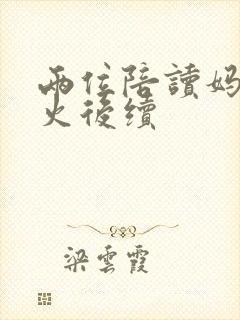 兩位陪讀媽
火後續
梁雲霞